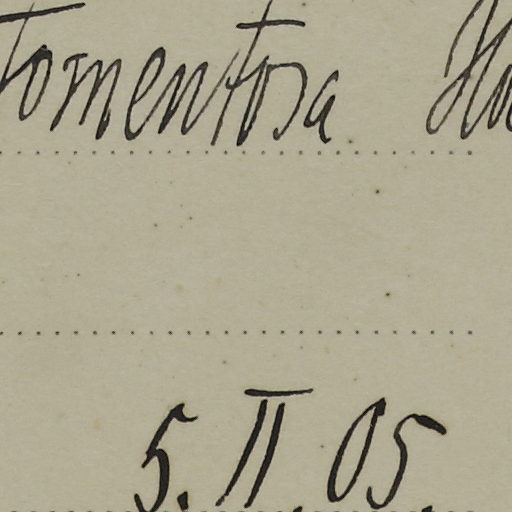 tomentosa
5. II. 05.